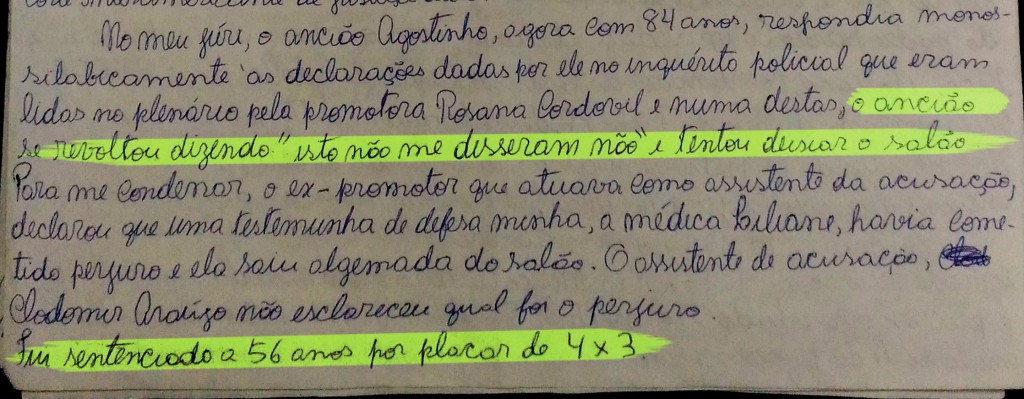 No meu júri, o ancião Agostinho, agora com 84 anos, respondia monos-
silabicamente as declarações dadas por ele no inquérito policial que eram
lidas no plenário pela promotora Rosana Cordovil e numa destas, o ancião
se revoltou dizendo "isto não me disseram não" e tentou deixar o salão
Para me condenar, o ex-promotor que atuava como assistente da acusação,
declarou que uma testemunha de defesa minha, a médica Liliane, havia come-
tido perjuro e ela saiu algemada do salão. O assistente de acusação,
Clodomir Araújo não esclareceu qual foi o perjuro.
Fui sentenciado a 56 anos por placar de 4 x 3.